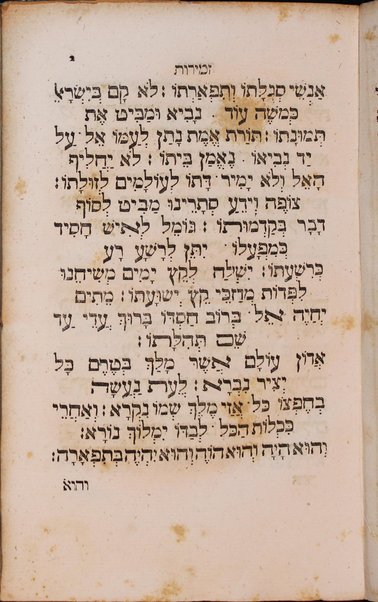 2
זמירות
אַנְשֵׁי סְגֻלָּתוֹ וְתִפְאַרְתּוֹ: לֹא קָם בְּיִשְׂרָאֵ
כְּמֹשֶׁה עוֹד נָבִיא וּמַבִּיט אֶת
תְּמוּנָתוֹ: תּוֹרַת אֱמֶת נָתַן לְעַמּוֹ אֵל עַל
יַד נְבִיאוֹ נֶאֱמַן בֵּיתוֹ: לֹא יַחֲלִיף
הָאֵל וְלֹא יָמִיר דָּתוֹ לְעוֹלָמִים לְזוּלָתוֹ:
צוֹפֶה וְיֹדֵעַ סְתָרֵינוּ מַבִּיט לְסוֹף
דָּבָר בְּקַדְמוּתוֹ: גּוֹמֵל לְאִישׁ חָסִיד
כְּמִפְעָלוֹ יִתֵּן לְרָשָׁע רָע
כְּרִשְׁעָתוֹ: יִשְׁלַח לְקֵץ יָמִים מְשִׁיחֵנוּ
לִפְדּוֹת מְחַכֵּי קֵץ יְשׁוּעָתוֹ: מֵתִים
יְחַיֶּה אֵל בְּרוֹב חַסְדּוֹ בָּרוּךְ עֲדֵי עַד
שֵׁם תְּהִלָּתוֹ:
אֲדוֹן עוֹלָם אֲשֶׁר מָלַךְ בְּטֶרֶם כָּל
יְצִיר נִבְרָא: לְעֵת נַעֲשָׂה
בְחֶפְצוֹ כֹּל אֲזַי מֶלֶךְ שְׁמוֹ נִקְרָא: וְאַחֲרֵי
כִּכְלוֹת הַכֹּל לְבַדּוֹ יִמְלוֹךְ נוֹרָא:
וְהוּא הָיָה וְהוּא הוֹוֶה וְהוּא יִהְיֶה בְּתִפְאָרָה:
והוא